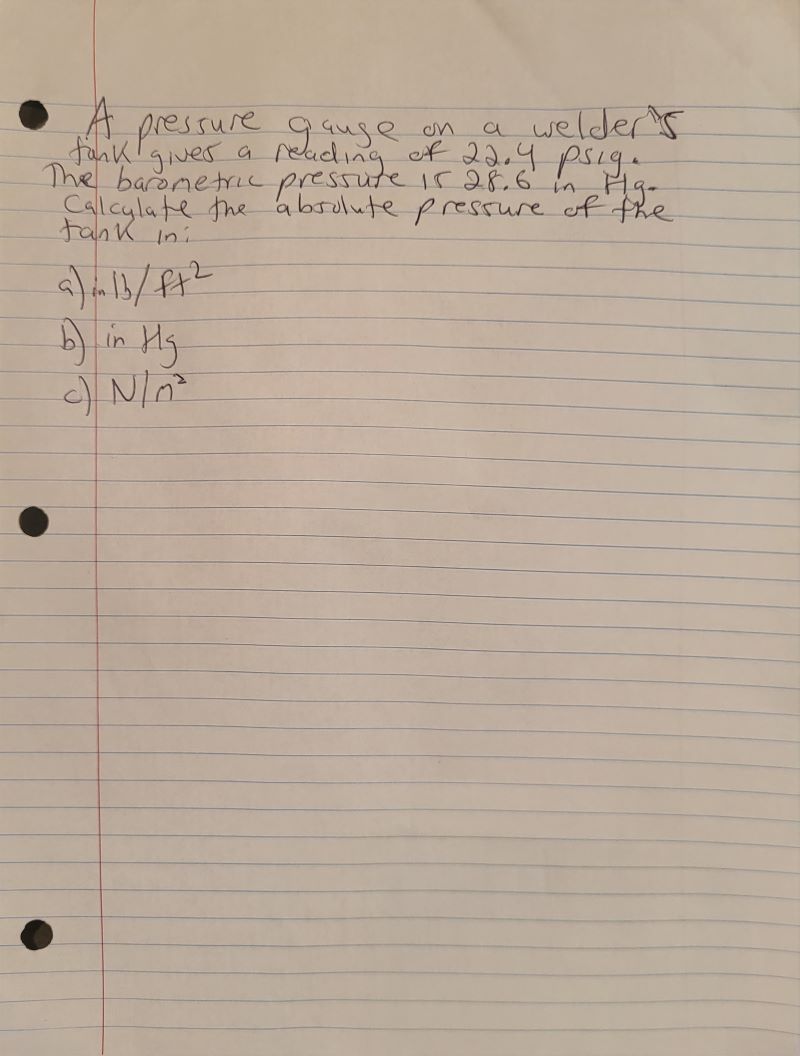 A pressure gauge on a welder's
tank gives a reading of 22.4 psig.
The barometric pressure is 28.6 in Hg.
Calculate the absolute pressure of the
tank in:
a) in lb/ft²
b) in Hg
c) N/m²